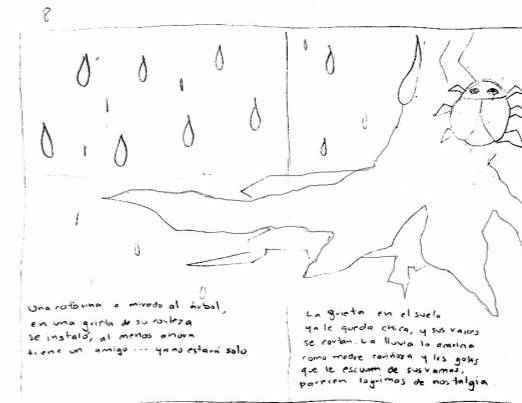 8
Una catarina a mirado al árbol,
en una grieta de su corteza
se instaló, al menos ahora
tiene un amigo... ya no estará solo
La grieta en el suelo
ya le queda chica, y sus raíces
se cortan. La lluvia lo acaricia
como madre cariñoza y las gotas
que le escurren de sus ramas,
parecen lagrimas de nostalgia.